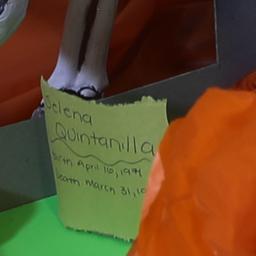 Selena
Quintanilla
birth April 16, 1971
Death March 31, 19